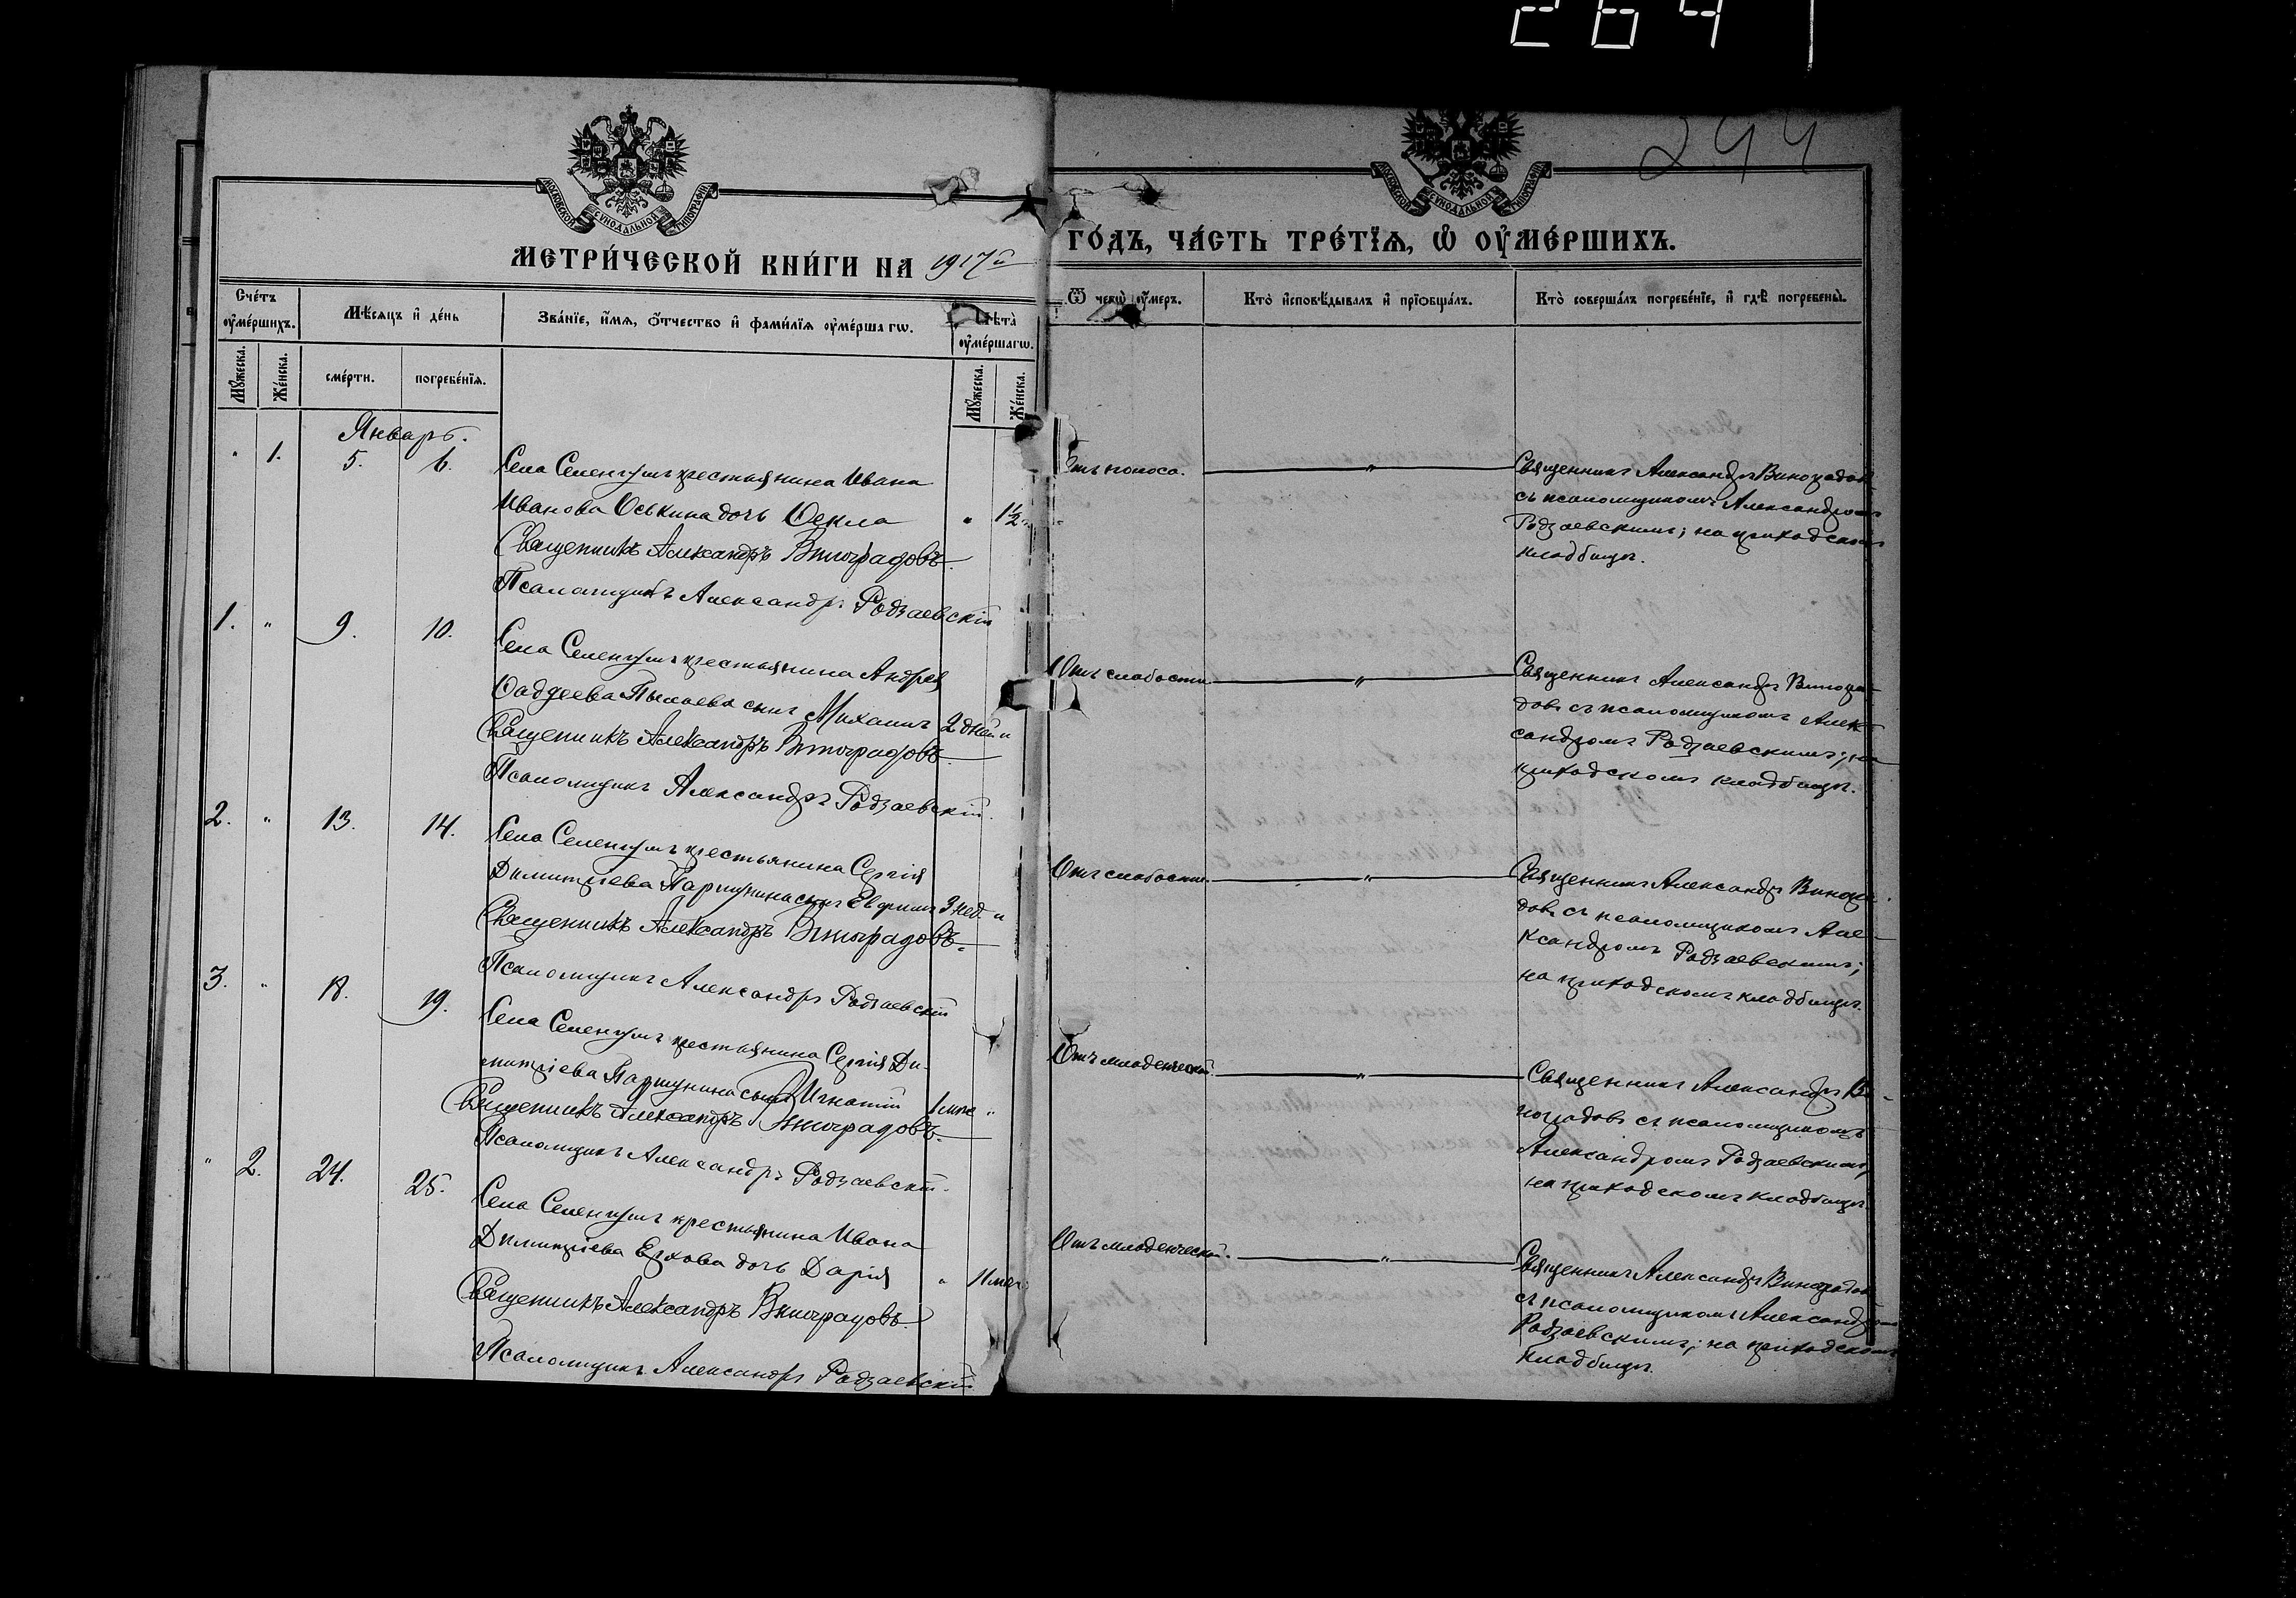 264
244
МОСКОВСКОЙ СѴНОДАЛЬНОЙ ТИПОГРАФІИ
МОСКОВСКОЙ СѴНОДАЛЬНОЙ ТИПОГРАФІИ
МЕТРИ́ЧЕСКОЙ КНИ́ГИ НА 1917й
ГО́ДЪ, ЧА́СТЬ ТРЕ́ТЇѦ, Ѽ ОУ҆МЕ́РШИХЪ.
Сче́тъ оу҆ме́ршихъ.
Мꙋ́жеска.
Же́нска.
Мѣ́сѧцъ и҆ де́нь
сме́рти.
погребе́нїѧ.
Зва́нїе, и҆́мѧ, ѻ҆́тчество и҆ фами́лїѧ оу҆ме́ршагѡ.
Лѣ́та̀ оу҆ме́ршагѡ.
Мꙋ́жеска.
Же́нска.
Ѿ чегѡ̀ оу҆́меръ.
Кто̀ и҆сповѣ́дывалъ и҆ прїѡбща́лъ.
Кто̀ соверша́лъ погребе́нїе, и҆ гдѣ̀ погребены̀.
Январь.
" 1. 5. 6.
Села Селенгуш крестьянина Ивана
Иванова Оськина дочь Ѳекла " 1½
Священникъ Александръ Виноградовъ
Псаломщикъ Александръ Родзаевскій
Отъ поноса. "
Священникъ Александръ Виноградовъ
съ псаломщикомъ Александромъ
Родзаевскимъ; на приходскомъ
кладбищѣ.
1. " 9. 10.
Села Селенгуш крестьянина Андрея
Ѳаддеева Пылаева сынъ Михаилъ 2 дней "
Священникъ Александръ Виноградовъ
Псаломщикъ Александръ Родзаевскій.
Отъ слабости "
Священникъ Александръ Виногра-
довъ съ псаломщикомъ Алек-
сандромъ Родзаевскимъ; на
приходскомъ кладбищѣ.
2. " 13. 14.
Села Селенгуш крестьянина Сергія
Димитріева Паршунина сынъ Евфимъ 3 нед. "
Священникъ Александръ Виноградовъ.
Псаломщикъ Александръ Родзаевскій
Отъ слабости "
Священникъ Александръ Виногра-
довъ съ псаломщикомъ Але-
ксандромъ Родзаевскимъ;
на приходскомъ кладбищѣ.
3. " 18. 19.
Села Селенгуш крестьянина Сергія Ди-
митріева Паршунина сынъ Игнатій 1 мѣс "
Священникъ Александръ Виноградовъ.
Псаломщикъ Александръ Родзаевскій.
Отъ младенческой. "
Священникъ Александръ Ви-
ноградовъ съ псаломщикомъ
Александромъ Родзаевскимъ,
на приходскомъ кладбищѣ.
" 2. 24. 25.
Села Селенгуш крестьянина Ивана
Димитріева Ерхова дочь Дарія " 11 мѣс.
Священникъ Александръ Виноградовъ.
Псаломщикъ Александръ Родзаевскій
Отъ младенческой. "
Священникъ Александръ Виноградовъ
съ псаломщикомъ Александромъ
Родзаевскимъ; на приходскомъ
кладбищѣ.